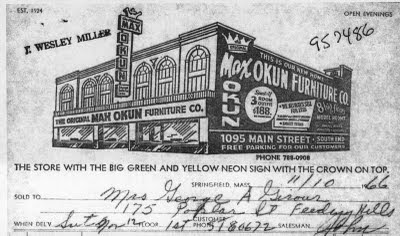 EST. 1924
OPEN EVENINGS
J. WESLEY MILLER
957486
MAX OKUN
THIS IS OUR NEW HOME
Max OKUN FURNITURE CO.
OKUN
3 ROOM OUTFIT
$188.
THE ORIGINAL MAX OKUN FURNITURE CO.
1095 MAIN STREET - SOUTH END
FREE PARKING FOR OUR CUSTOMERS
PHONE 788-0908
THE STORE WITH THE BIG GREEN AND YELLOW NEON SIGN WITH THE CROWN ON TOP.
SPRINGFIELD, MASS. 11/10 1966
SOLD TO Mrs George A Girour
175 St Feeding Hills
WHEN DEL'V Sat Nov 12 FLOOR 1st CUSTOMER PHONE 180672 SALESMAN